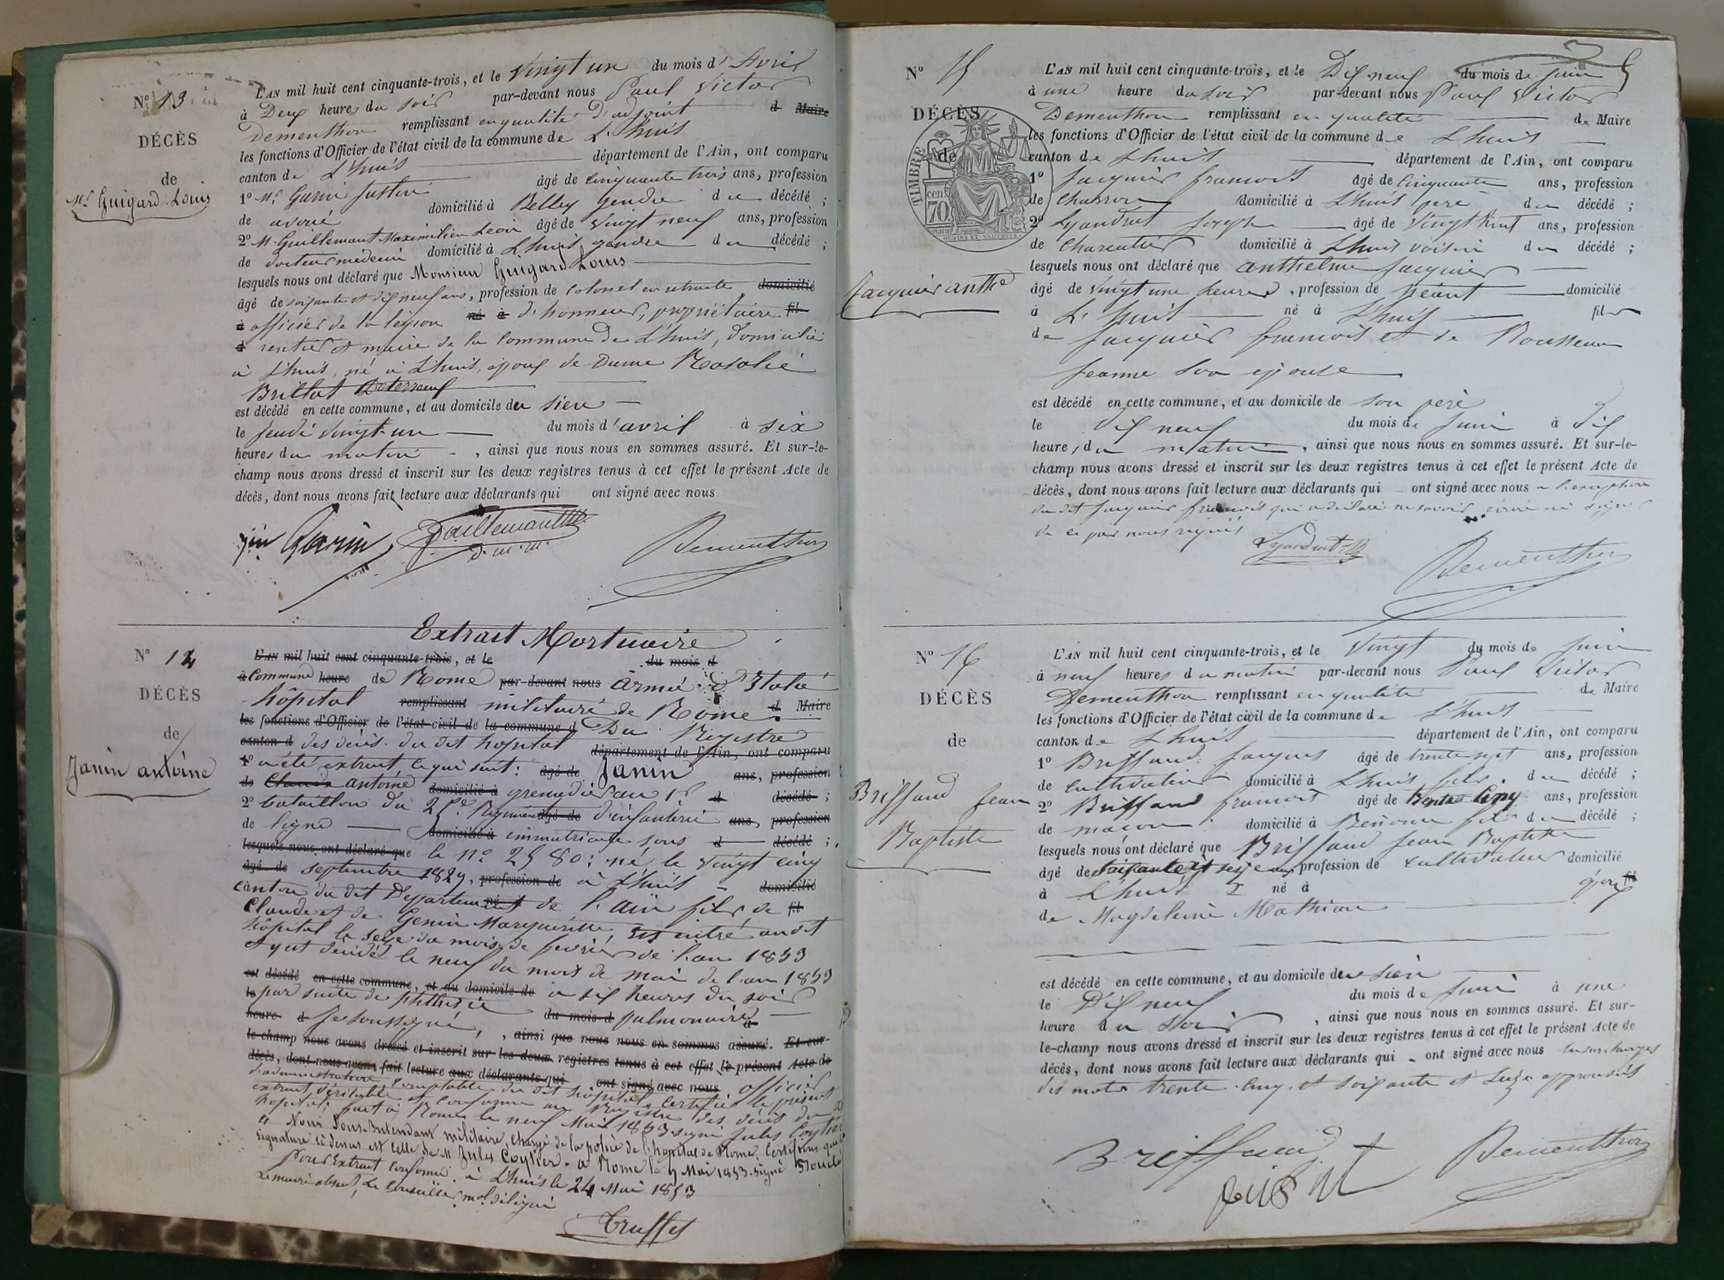 N° 13
DÉCÈS
de
Mr Guigard Louis
L'AN mil huit cent cinquante-trois, et le Vingt un du mois d'Avril
à Deux heures du soir par-devant nous Paul Victor
Dementhon remplissant en qualité d'adjoint d Maire
les fonctions d'Officier de l'état civil de la commune de L'huis
canton de L'huis département de l'Ain, ont comparu
1° Mr Garin Justin âgé de cinquante trois ans, profession
de avoué domicilié à Belley Gendre du décédé ;
2° M. Guillemaut Maximilien Léon âgé de vingt neuf ans, profession
de docteur médecin domicilié à L'huis gendre du décédé ;
lesquels nous ont déclaré que Monsieur Guigard Louis
âgé de soixante et dix neuf ans, profession de colonel en retraite domicilié
à officier de la légion né à d'honneur, propriétaire fil
d rentier et maire de la commune de L'huis, domicilié
à L'huis, né à L'huis, époux de Dame Rosalie
Brillat
est décédé en cette commune, et au domicile du sien
le jeudi vingt-un du mois d'avril à six
heures du matin, ainsi que nous nous en sommes assuré. Et sur-le-
champ nous avons dressé et inscrit sur les deux registres tenus à cet effet le présent Acte de
décès, dont nous avons fait lecture aux déclarants qui ont signé avec nous
Jin Garin Guillemaut d.m.m. Dementhon
Extrait Mortuaire
N° 14
DÉCÈS
de
Janin antoine
L'AN mil huit cent cinquante-trois, et le du mois d
à Commune heure de Rome par-devant nous Armée d'Italie
hôpital remplissant militaire de Rome d Maire
les fonctions d'Officier de l'état civil de la commune d Du Registre
canton d des décès du dit hôpital département de l'Ain, ont comparu
1° a été extrait ce qui suit : âgé de Janin ans, profession
de antoine domicilié à grenadier au d décédé ;
2° bataillon du 25e Régiment âgé de d'infanterie ans, profession
de ligne domicilié à immatriculé sous d décédé ;
lesquels nous ont déclaré que le n° 2580 : né le vingt cinq
âgé de septembre 1829, profession de à L'huis domicilié
canton du dit Département né à de l'ain fils de fil
Claude et de Genin Marguerite est entré audit
hôpital le seize du mois de février de l'an 1853
et y est décédé le neuf du mois de mai de l'an 1853
est décédé en cette commune, et au domicile de à dix heures du soir
le par suite de phthisie
heure d Je soussigné, du mois d pulmonaire à
, ainsi que nous nous en sommes assuré. Et sur-
le-champ nous avons dressé et inscrit sur les deux registres tenus à cet effet le présent Acte de
décès, dont nous avons fait lecture aux déclarants qui ont signé avec nous officier
d'administration comptable du dit hôpital certifie le présent
extrait véritable et conforme au Registre des décès du dit
hôpital, fait à Rome le neuf Mai 1853 signé Jules Coytier
Nous Sous-Intendant militaire, chargé de la police de l'hôpital de Rome, certifions que la
signature ci-dessus est celle de M. Jules Coytier. à Rome le 9 Mai 1853. signé
Pour Extrait conforme à L'huis le 24 Mai 1853
Le maire absent, Le Conseiller mpal délégué
Truffet
N° 15
DÉCÈS
de
TIMBRE
cent
70
Jacquier anthe
5
L'AN mil huit cent cinquante-trois, et le Dix neuf du mois de juin
à une heure du soir par-devant nous Paul Victor
Dementhon remplissant en qualité de Maire
les fonctions d'Officier de l'état civil de la commune de L'huis
canton de L'huis département de l'Ain, ont comparu
1° Jacquier francois âgé de cinquante ans, profession
de charron domicilié à L'huis père du décédé ;
2° Lyaudrat Joseph âgé de vingt huit ans, profession
de charcutier domicilié à L'huis voisin du décédé ;
lesquels nous ont déclaré que anthelme Jacquier
âgé de vingt une heures, profession de néant domicilié
à L'huis né à L'huis fils
de Jacquier francois et de Rousseau
Jeanne son épouse
est décédé en cette commune, et au domicile de son père
le dix neuf du mois de juin à dix
heures du matin, ainsi que nous nous en sommes assuré. Et sur-le-
champ nous avons dressé et inscrit sur les deux registres tenus à cet effet le présent Acte de
décès, dont nous avons fait lecture aux déclarants qui ont signé avec nous à l'exception
du dit Jacquier francois qui a déclaré ne savoir écrire ni signer
de ce par nous requis
Lyaudrat Dementhon
N° 16
DÉCÈS
de
Briffaud Jean
Baptiste
L'AN mil huit cent cinquante-trois, et le vingt du mois de juin
à neuf heures du matin par-devant nous Paul Victor
Dementhon remplissant en qualité de Maire
les fonctions d'Officier de l'état civil de la commune de L'huis
canton de L'huis département de l'Ain, ont comparu
1° Briffaud Jacques âgé de trente sept ans, profession
de cultivateur domicilié à L'huis fils du décédé ;
2° Briffaud francois âgé de trente cinq ans, profession
de macon domicilié à fils du décédé ;
lesquels nous ont déclaré que Briffaud Jean Baptiste
âgé de soixante et seize ans profession de cultivateur domicilié
à L'huis né à époux fil
de Magdeleine Mathian
est décédé en cette commune, et au domicile du sien
le Dix neuf du mois de juin à une
heure du soir, ainsi que nous nous en sommes assuré. Et sur-
le-champ nous avons dressé et inscrit sur les deux registres tenus à cet effet le présent Acte de
décès, dont nous avons fait lecture aux déclarants qui ont signé avec nous les surcharges
des mots trente cinq, et soixante et seize approuvés
Briffaud Dementhon